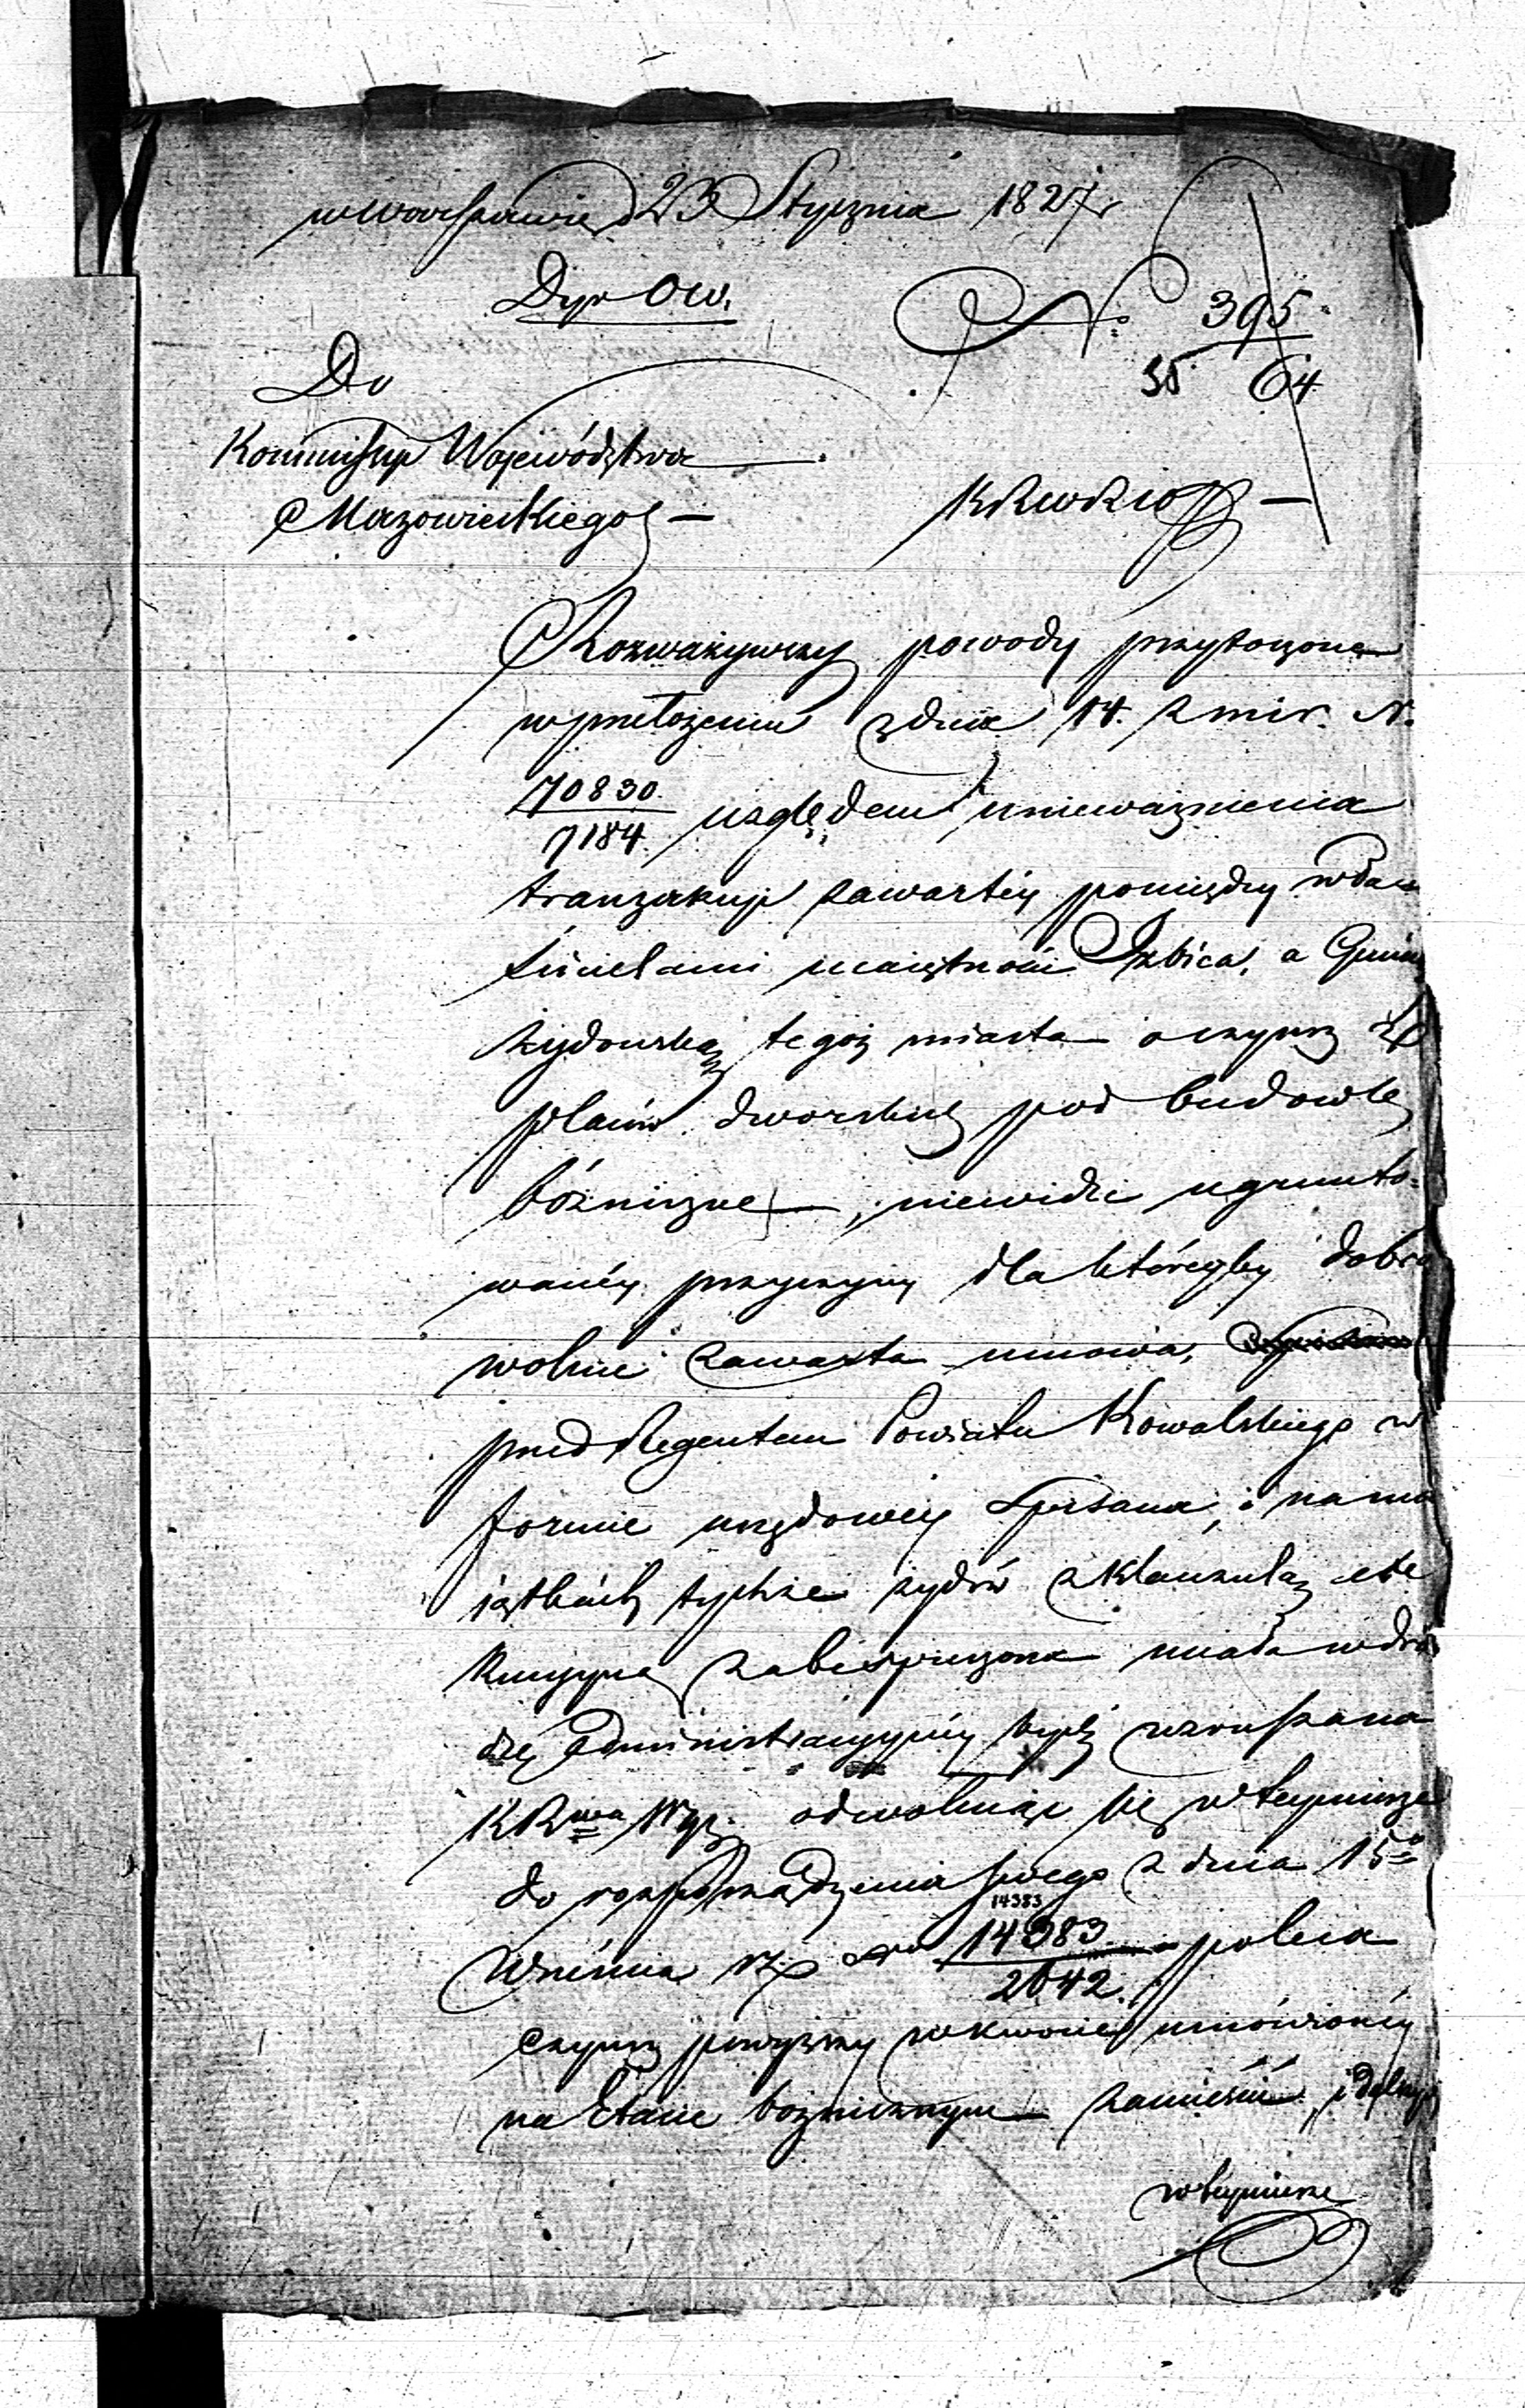 w Warszawie d 23 Stycznia 1827 r
Dyr OW.
N. 395
35 64
Do
Kommissyi Województwa
Mazowieckiego
KRWRiOP
Rozważywszy powody przytoczone
w przełożeniu z dnia 14. z mir. N.
70830
7184 względem unieważnienia
tranzakcyi zawartéy pomiędzy wła
ścicielami maiętności Izbica, a Gminą
żydowską tegoż miasta o czynsz z
placów dworskich pod budowle
bóżniczne, niewidzi ugrunto-
wanéy przyczyny dla któréyby dobro
wolnie zawarta umowa,
przed Regentem Powiatu Kowalskiego w
formie urzędowéy spisana, i na ma
iątkach tychże żydów z klauzulą exe
kucyyną zabespieczona miała w dro
dze administracyynéy bydź wzruszana
KRwa Wyz. odwołuiąc się w teymierze
do rozporządzenia swego z dnia 15º
Września r z. Nro 14383
14383
2642. poleca
czynsz powyższy w kwocie umówionéy
na Etacie bożnicznym zamieścić, i dalszy
w teymierze